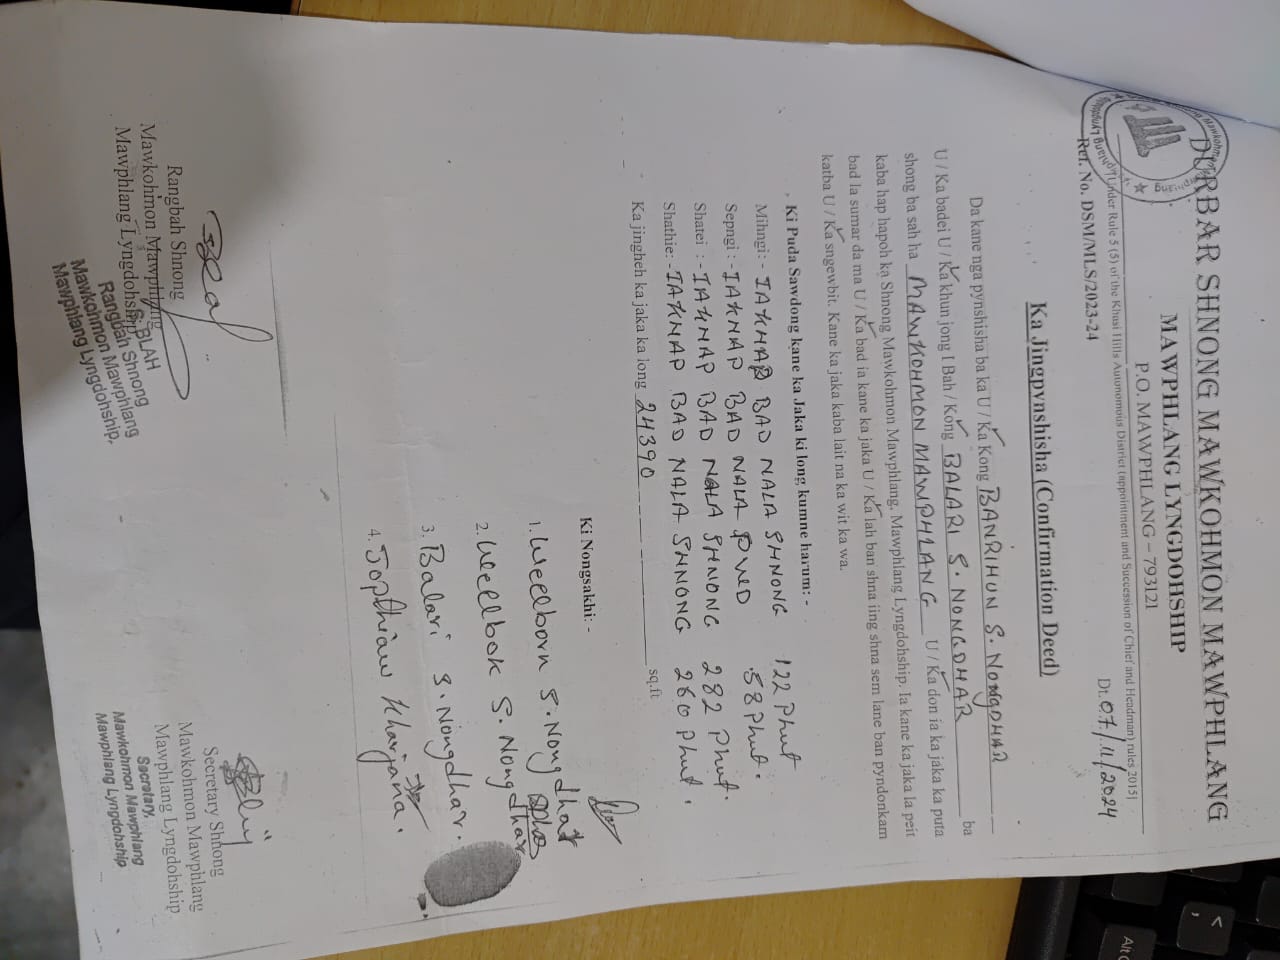 DURBAR SHNONG MAWKOHMON MAWPHLANG
MAWPHLANG LYNGDOHSHIP
P.O. MAWPHLANG – 793121
(Under Rule 5 (5) of the Khasi Hills Autonomous District (appointment and Succession of Chief and Headman) rules 2015)
Ref. No. DSM/MLS/2023-24
Dt. 07/11/2024
Ka Jingpynshisha (Confirmation Deed)
Da kane nga pynshisha ba ka U / Ka Kong BANRIHUN S. NONGDHAR
U / Ka badei U / Ka khun jong I Bah / Kong BALARI S. NONGDHAR ba
shong ba sah ha MAWKOHMON MAWPHLANG U / Ka don ia ka jaka ka puta
kaba hap hapoh ka Shnong Mawkohmon Mawphlang, Mawphlang Lyngdohship. Ia kane ka jaka la peit
bad la sumar da ma U / Ka bad ia kane ka jaka U / Ka lah ban shna iing shna sem lane ban pyndonkam
katba U / Ka sngewbit. Kane ka jaka kaba lait na ka wit ka wa.
Ki Puda Sawdong kane ka Jaka ki long kumne harum: -
Mihngi: - IAKHAP BAD NALA SHNONG 122 Phut
Sepngi : - IAKHAP BAD NALA PWD 58 Phut.
Shatei : - IAKHAP BAD NALA SHNONG 282 Phut.
Shathie: - IAKHAP BAD NALA SHNONG 260 Phut.
Ka jingheh ka jaka ka long 24390 sq.ft
Ki Nongsakhi: -
1. Weelborn S. Nongdhar
2. Weelbok S. Nongdhar
3. Balari S. Nongdhar.
4. Jopthiaw Kharjana.
Rangbah Shnong
Mawkohmon Mawphlang
Mawphlang Lyngdohship
S. BLAH
Rangbah Shnong
Mawkohmon Mawphlang
Mawphlang Lyngdohship,
Secretary Shnong
Mawkohmon Mawphlang
Mawphlang Lyngdohship
Secretary,
Mawkohmon Mawphlang
Mawphlang Lyngdohship
Alt